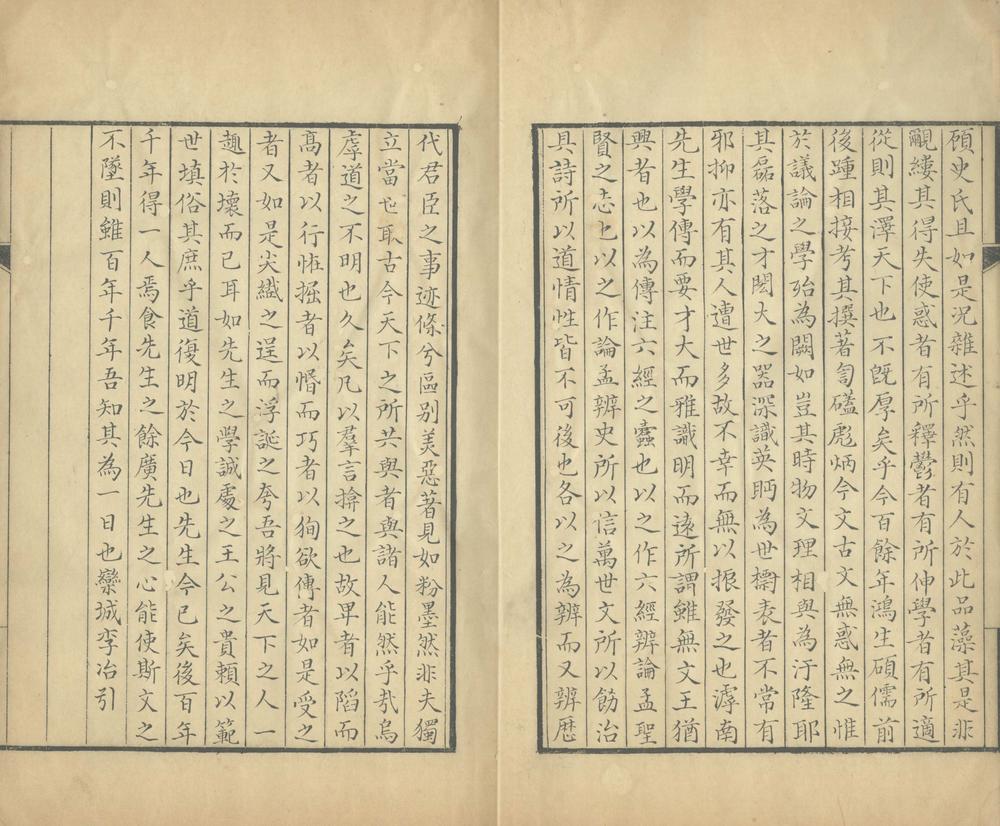 顧史氏且如是況雜述乎然則有人於此品藻其是非
覼縷其得失使惑者有所釋鬱者有所伸學者有所適
從則其澤天下也不既厚矣乎今百餘年鴻生碩儒前
後踵相接考其撰著訇礚彪炳今文古文無惑無之惟
於議論之學殆為闕如豈其時物文理相與為汙隆耶
其磊落之才閎大之器深識英眄為世櫥表者不常有
邪抑亦有其人遭世多故不幸而無以振發之也滹南
先生學傳而要才大而雅識明而遠所謂雖無文王猶
興者也以為傳注六經之蠹也以之作六經辨論孟聖
賢之志也以之作論孟辨史所以信萬世文所以飭治
具詩所以道情性皆不可後也各以之為辨而又辨歷
代君臣之事迹條兮區別美惡著見如粉墨然非夫獨
立當世取古今天下之所共與者與諸人能然乎㢤烏
虖道之不明也久矣凡以羣言揜之也故卑者以䧟而
髙者以行怪掘者以惛而巧者以狥欲傳者如是受之
者又如是尖纎之逞而浮誕之夸吾將見天下之人一
趣於壞而已耳如先生之學誠處之王公之貴頼以範
世填俗其庶乎道復明於今日也先生今已矣後百年
千年得一人焉食先生之餘廣先生之心能使斯文之
不墜則雖百年千年吾知其為一日也欒城李冶引